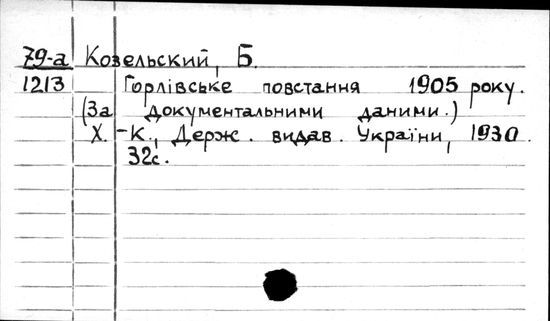 79-а Козельский, Б.
1213 Горлівське повстання 1905 року.
(За документальними даними.)
Х. -К., Держ. видав. України, 1930.
32с.